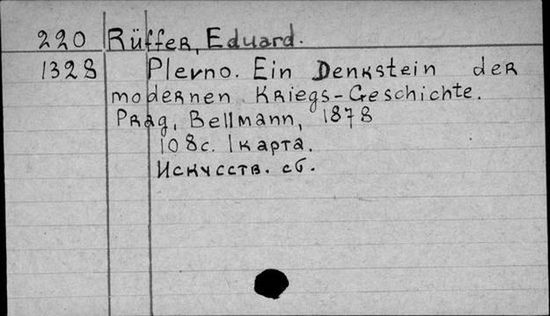 220 Rüffer, Eduard.
1328 Plevno. Ein Denkstein der
modernen Kriegs-Geschichte.
Prag, Bellmann, 1878
108с. 1 карта.
Искусств. сб.